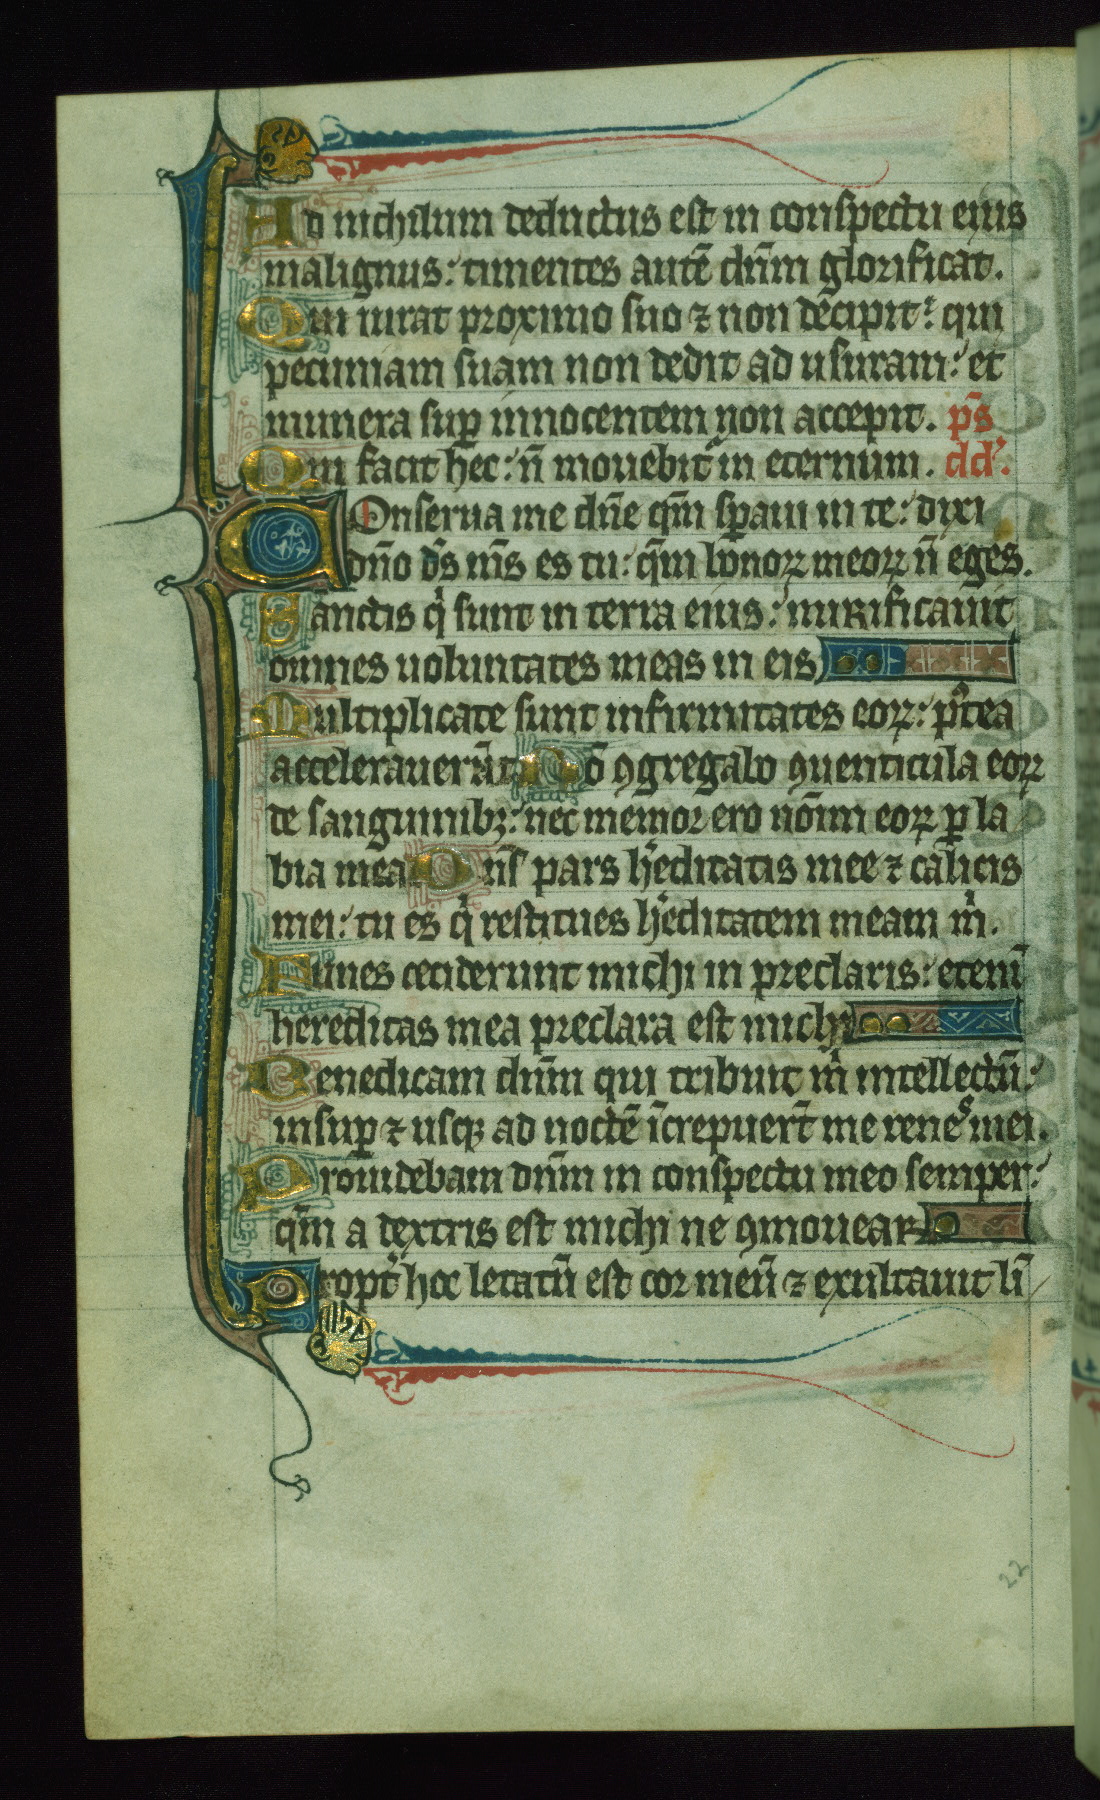 Ad nichilum deductus est in conspectu eius
malignus: timentes autē dn̄m glorificat.
Qui iurat proximo suo ⁊ non decipit: qui
pecuniam suam non dedit ad usuram: et
munera sup̱ innocentem non accepit. ps̄
Qui facit hec: n̄ movebit᷑ in eternum. dd᷑.
Conserua me dn̄e qm̄ sp̱aui in te: dixi
dn̄o ds̄ m̄s es tu: qm̄ bonoꝝ meoꝝ n̄ eges.
Sanctis qͥ sunt in terra eius: mirificauit
omnes uoluntates meas in eis
Multiplicate sunt infirmitates eoꝝ: pꝰtea
accelerauerūt Nō ꝯgregabo ꝯuenticula eoꝝ
de sanguinibꝫ: nec memor ero noīm eoꝝ ꝑ la
bia mea Dn̄s pars hereditatis mee ⁊ calicis
mei: tu es qͥ restitues hereditatem meam mͥ.
Funes ceciderunt michi in preclaris: etenī
hereditas mea preclara est michi
Benedicam dn̄m qui tribuit mͥ intellectū:
insuꝑ ⁊ usqꝫ ad noctē īcrepuerūt me renes mei.
Prouidebam dn̄m in conspectu meo semper:
qm̄ a dextris est michi ne ꝯmouear
Propt̄ hoc letatū est cor meū ⁊ exultauit lī
22